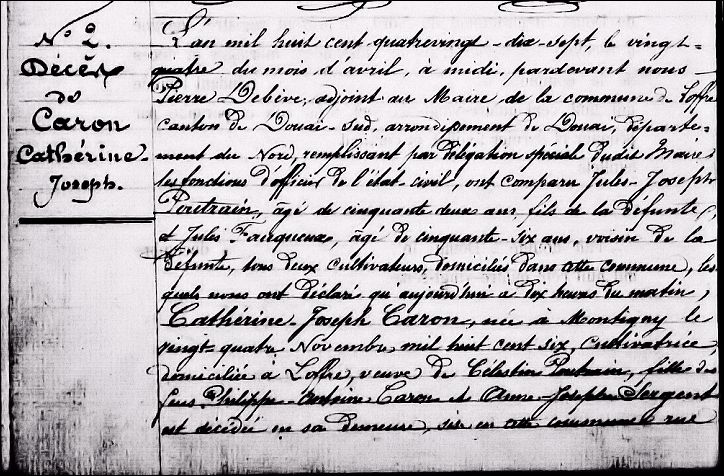 N° 2.
Décès
de
Caron
Cathérine-
Joseph.
L'an mil huit cent quatrevingt-dix-sept, le vingt-
quatre du mois d'avril, à midi, pardevant nous
Pierre Debève, adjoint au Maire de la commune de Loffre
canton de Douai-sud, arrondissement de Douai, départe-
ment du Nord, remplissant par délégation spéciale dudit Maire
les fonctions d'officier de l'état-civil, ont comparu Jules-Joseph
Poutrain, âgé de cinquante deux ans, fils de la défunte,
et Jules Fauqueux, âgé de cinquante-six ans, voisin de la
défunte, tous deux cultivateurs, domiciliés dans cette commune, les
quels nous ont déclaré qu'aujourd'hui à dix heures du matin,
Cathérine-Joseph Caron, née à Montigny le
vingt-quatre Novembre mil huit cent six, Cultivatrice,
domiciliée à Loffre, veuve de Célestin Poutrain, fille de
feus Philippe-Antoine Caron et Anne-Joseph Sergent
est décédée en sa demeure, sise en cette commune rue